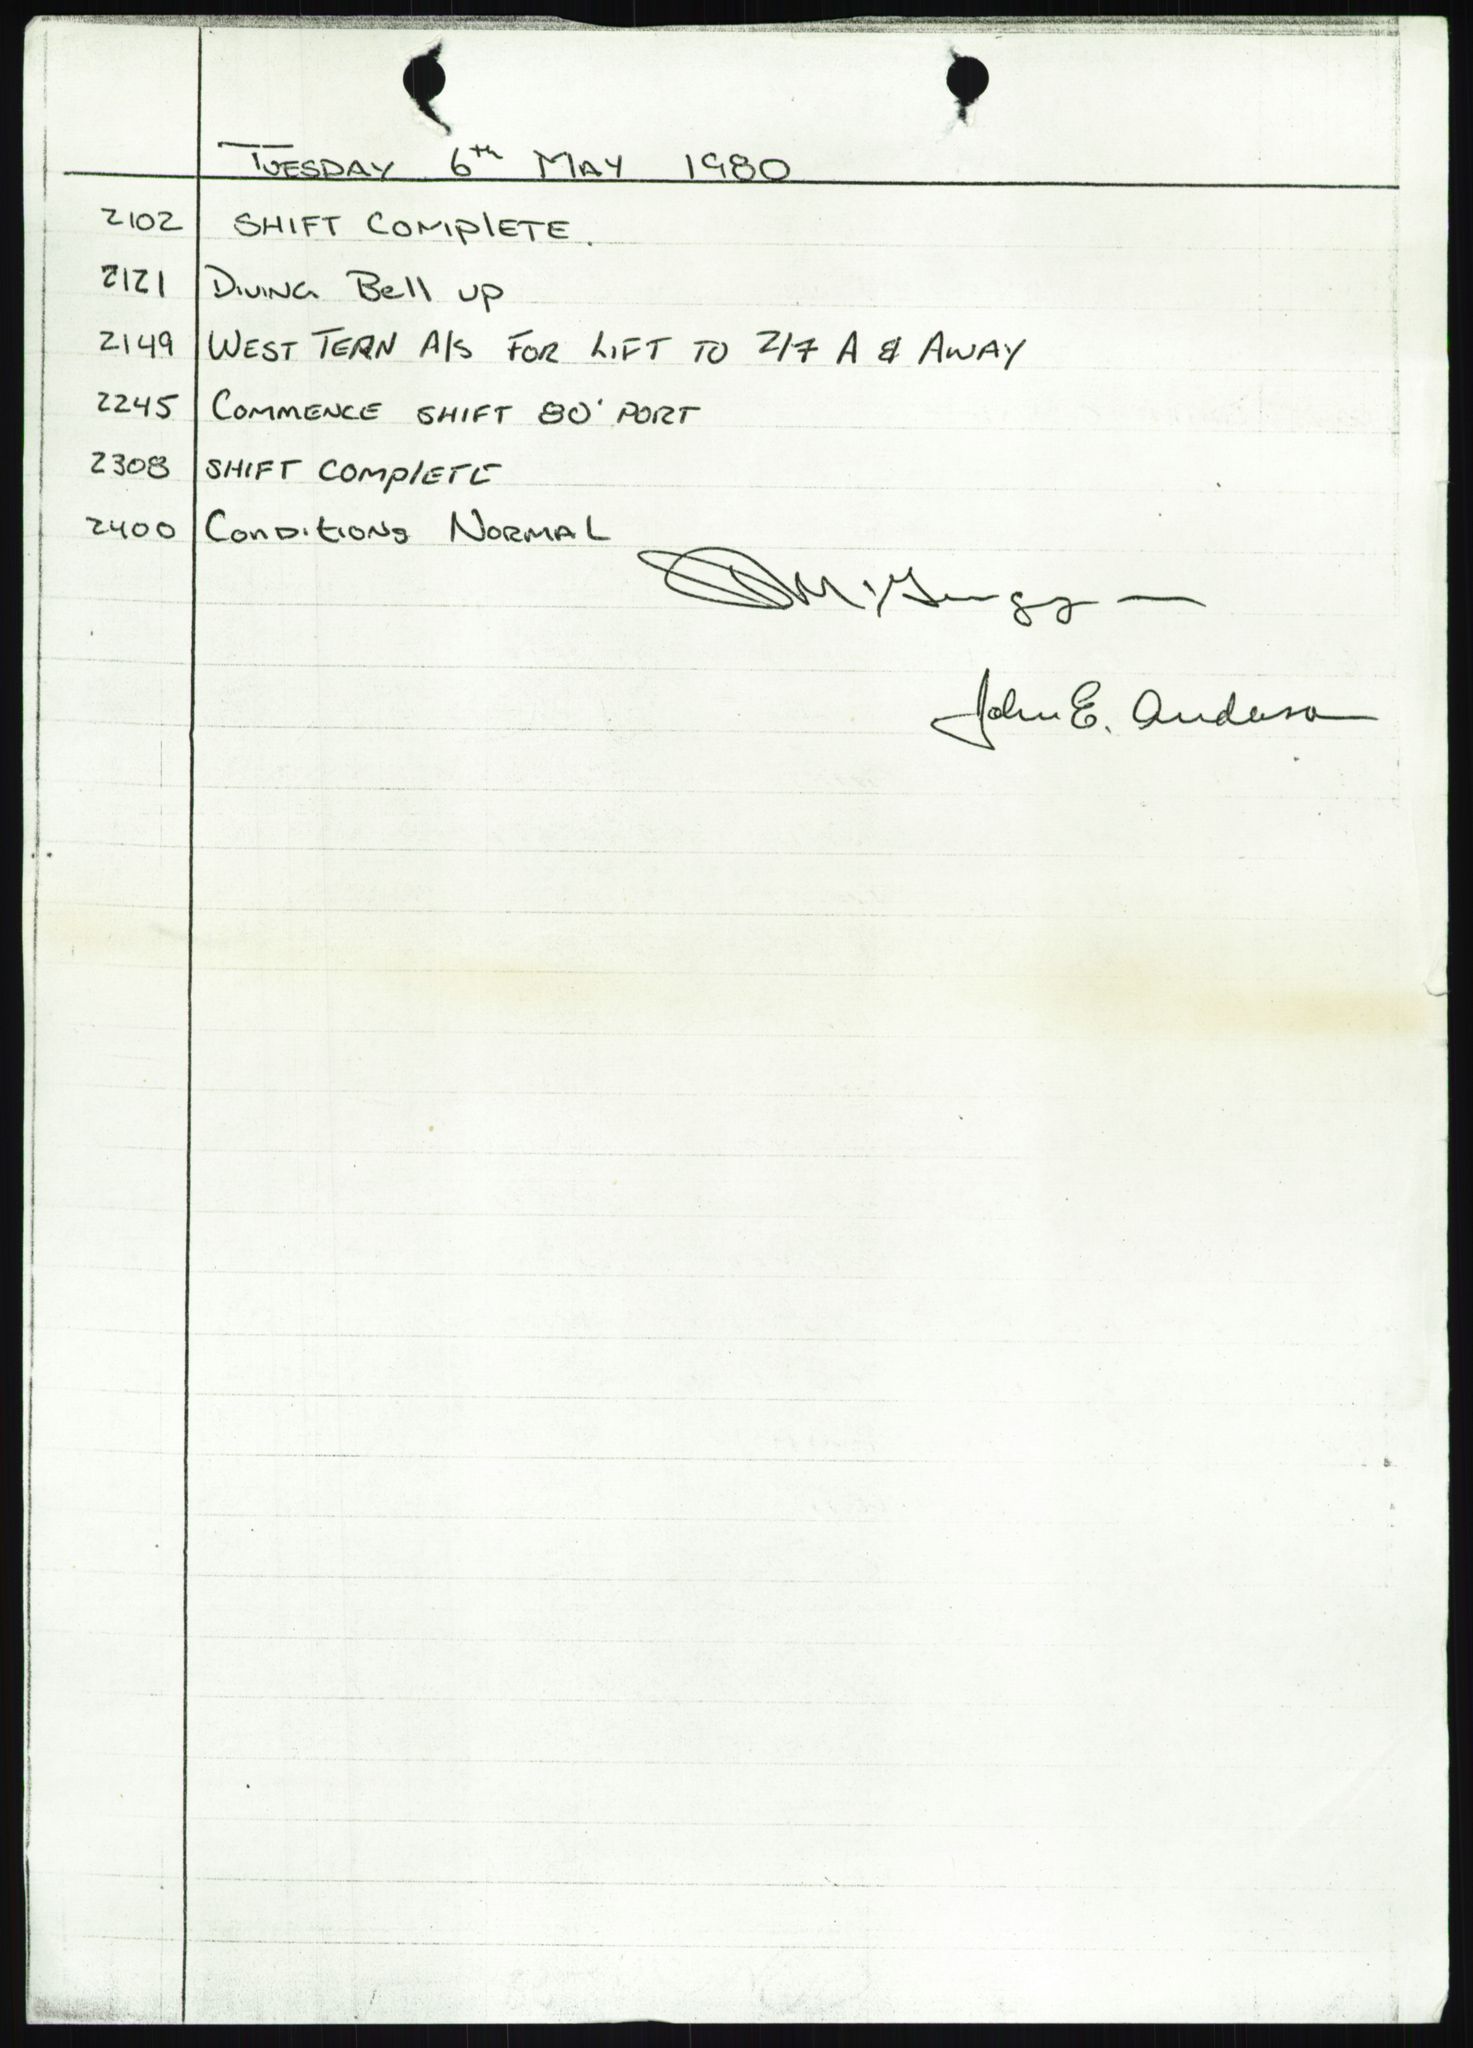 TUESDAY 6th MAY 1980
2102 SHIFT COMPLETE.
2121 DIVING Bell up
2149 WEST TERN A/S FOR LIFT TO 2/7 A & AWAY
2245 COMMENCE SHIFT 80' PORT
2308 SHIFT COMPLETE
2400 CONDITIONS NORMAL
John E. Anderson